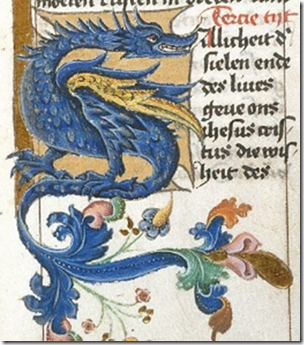 Tercie tijt
Alicheit d'
sielen ende
des liues
geue ons
ihesus cris
tus die wijs
heit des